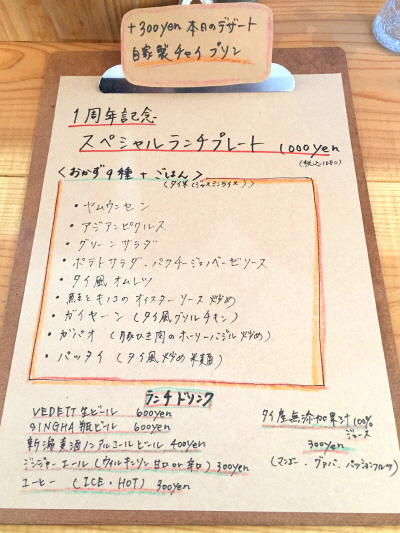 +300yen 本日のデザート
自家製チャイプリン
1周年記念
スペシャルランチプレート 1000yen
<おかず9種+ごはん>
(タイ米(ジャスミンライス))
・ヤムウンセン
・アジアンピクルス
・グリーンサラダ
・ポテトサラダ、パクチージェノベーゼソース
・タイ風オムレツ
・鮭とキノコのオイスターソース炒め
・ガイヤーン(タイ風グリルチキン)
・ガパオ(豚ひき肉のホーリーバジル炒め)
・パッタイ(タイ風炒め米麺)
ランチドリンク
VEDETT生ビール 600yen
SINGHA瓶ビール 600yen
新潟麦酒ノンアルコールビール 400yen
ジンジャーエール(ウィルキンソン 甘口or辛口) 300yen
コーヒー (ICE・HOT) 300yen
タイ産無添加果汁100%
ジュース
300yen
(マンゴー、グァバ、パッションフルーツ)